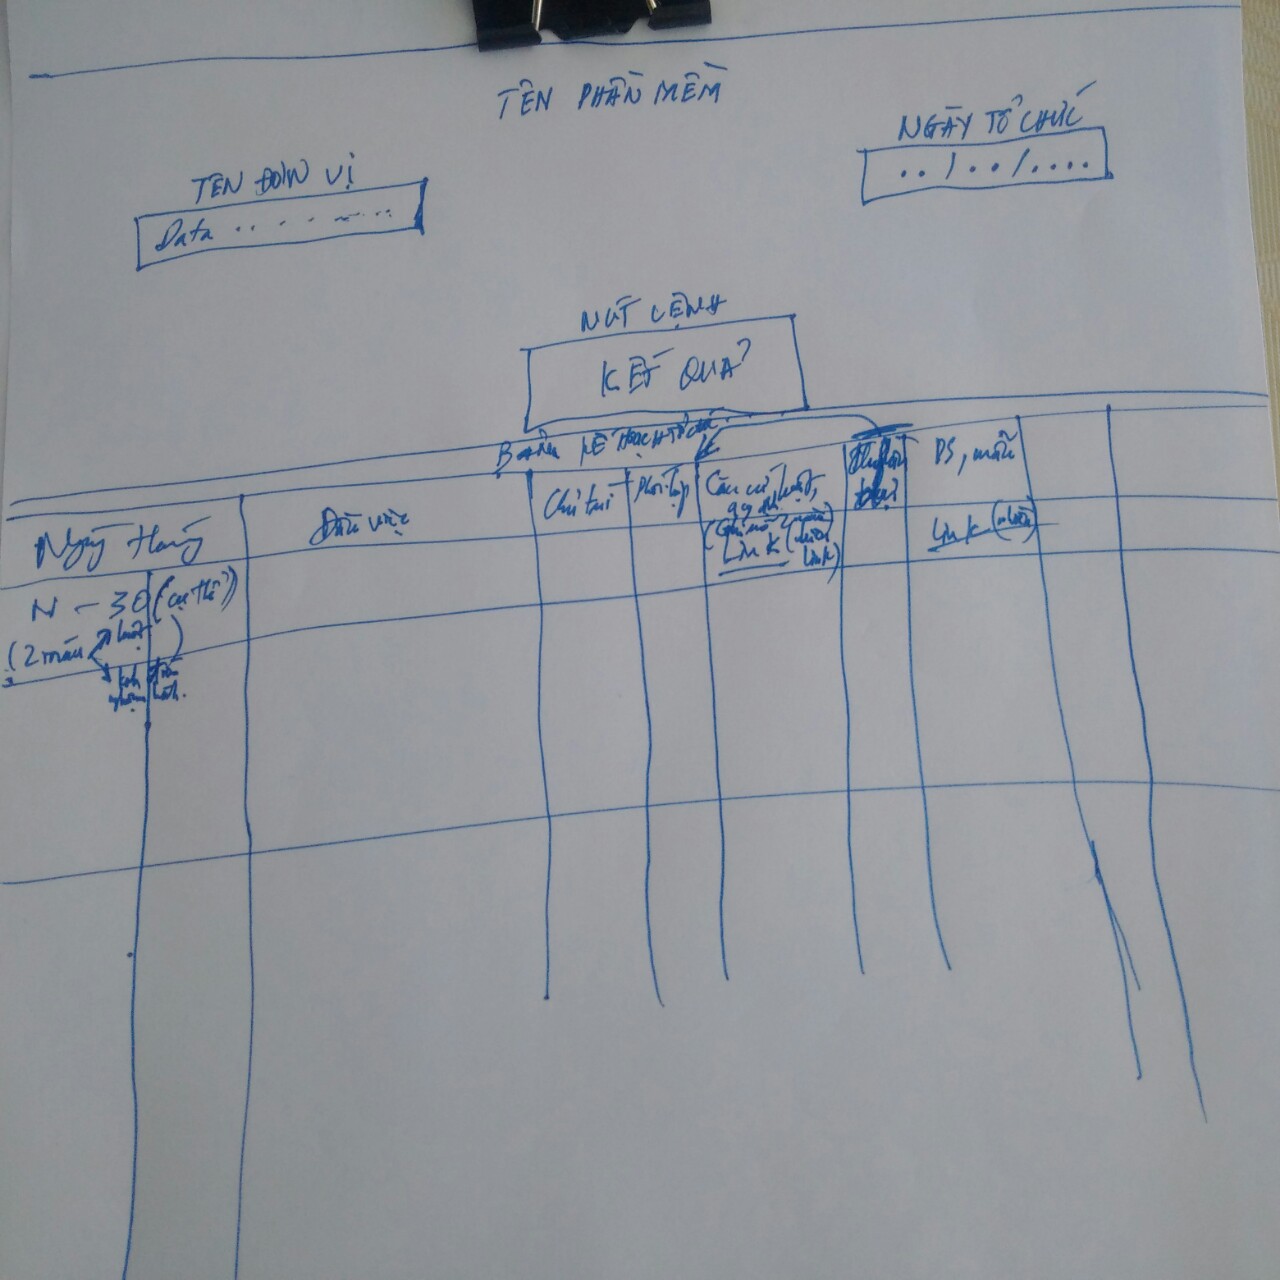 TÊN PHẦN MỀM
NGÀY TỔ CHỨC
../../....
TÊN ĐƠN VỊ
Data
NÚT LỆNH
KẾT QUẢ
KẾ HOẠCH TỔ CHỨC
Ngày tháng
Đầu việc
Chủ trì
Phối hợp
Căn cứ luật,
Link (nhiều link)
DS, mẫu
Link (nhiều)
N - 30 (cụ thể)
(2 màu luật)